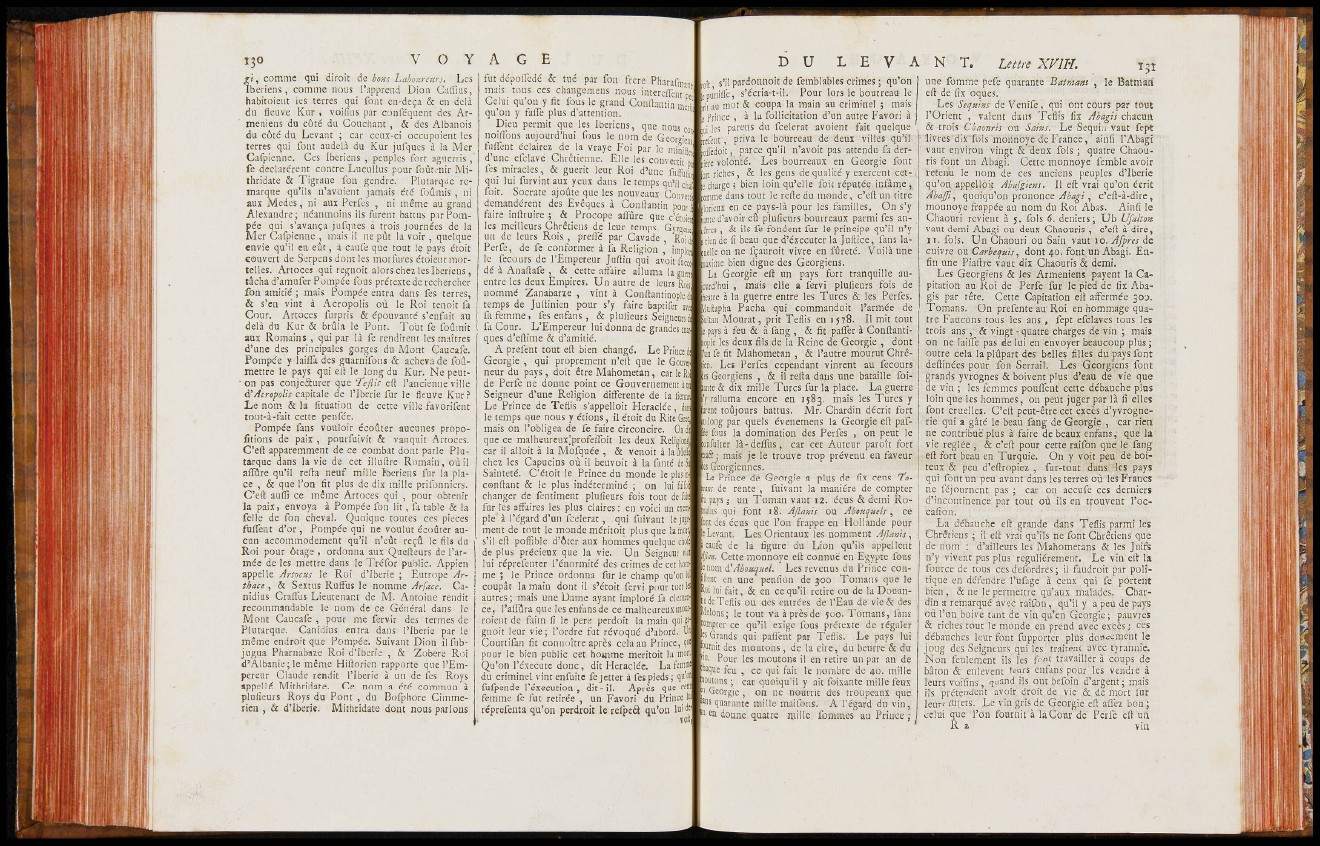 130 VOYAGE
gi, comme qui diroit de bons Laboureurs. Les
Iberiens, comme nous l'apprend Dion Caſſius,
habitoient les terres qui ſont en-deça & en delà
du fleuve Kur, voiſins par conſéquent des Ar-
meniens du côté du Couchant, & des Albanois
du côté du Levant ; car ceux-ci occupoient les
terres qui ſont audelà du Kur juſques à la Mer
Caſpienne. Ces Iberiens, peuples fort aguerris,
ſe declarérent contre Lucullus pour ſoûtenir Mi-
thridate & Tigrane ſon gendre. Plutarque re-
marque qu'ils n'avoient jamais été ſoûmis, ni
aux Medes, ni aux Perſes, ni même au grand
Alexandre; néanmoins ils furent battus par Pom-
pée qui s'avança juſques à trois journées de la
Mer Caſpienne, mais il ne pût la voir, quelque
envie qu'il en eût, à cauſe que tout le pays étoit
couvert de Serpens dont les morſures étoient mor-
telles. Artoces qui regnoit alors chez les Iberiens,
tâcha d'amuſer Pompée ſous prétexte de rechercher
ſon amitié ; mais Pompée entra dans ſes terres,
& s'en vint à Acropolis où le Roi tenoit ſa
Cour. Artoces ſurpris & épouvanté s'enfuit au
delà du Kur & brûla le Pont. Tout ſe ſoûmit
aux Romains, qui par là ſe rendirent les maîtres
d'une des principales gorges du Mont Caucaſe.
Pompée y laiſſa des guarniſons & acheva de ſoû-
mettre le pays qui eſt le long du Kur. Ne peut-
on pas conjecturer que Teflis eſt l'ancienne ville
d'Acropolis capitale de l'Iberie ſur le fleuve Kur?
Le nom & la ſituation de cette ville favoriſent
tout-à-fait cette penſée.
Pompée ſans vouloir écoûter aucunes propo-
ſitions de paix, pourſuivit & vanquit Artoces.
C'eſt apparemment de ce combat dont parle Plu-
tarque dans la vie de cet illuſtre Romain, où il
aſſûre qu'il reſta neuf mille Iberiens ſur la pla-
ce, & que l'on fit plus de dix mille priſonniers.
C'eſt auſſi ce même Artoces qui, pour obtenir
la paix, envoya à Pompée ſon lit, ſa table & la
ſelle de ſon cheval. Quoique toutes ces pieces
fuſſent d'or, Pompée qui ne voulut écoûter au-
cun accommodement qu'il n'eût reçû le fils du
Roi pour ôtage, ordonna aux Queſteurs de l'ar-
mée de les mettre dans le Tréſor public. Appien
appelle Artocus le Roi d'Iberie ; Eutrope Ar-
thace, & Sextus Ruffus le nomme Arſace. Ca-
nidius Craſſus Lieutenant de M. Antoine rendit
recommandable le nom de ce Général dans le
Mont Caucaſe, pour me ſervir des termes de
Plutarque. Canidius entra dans l'Iberie par le
même endroit que Pompée. Suivant Dion il ſub-
jugua Pharnabaze Roi d'Iberie, & Zobere Roi
d'Albanie; le même Hiſtorien rapporte que l'Em-
pereur Claude rendit l'Iberie à un de ſes Roys
appellé Mithridate. Ce nom a été commun à
pluſieurs Roys du Pont, du Boſphore Cimme-
rien, & d'Iberie. Mithridate dont nous parlons
fut dépoſſedé & tué par ſon frere
mais tous ces changemens nous intereſſent
Celui qu'on y fit ſous le grand Conſtantin
qu'on y faſſe plus d'attention.
Dieu permit que les Iberiens, que nous
noiſſons aujourd'hui ſous le nom de
fuſſent éclairez de la vraye Foi par le
d'une eſclave Chrêtienne. Elle les convertit
ſes miracles, & guerit leur Roi d'une
qui lui ſurvint aux yeux dans le temps qu'il
ſoit. Socrate ajoûte que les nouveaux
demandérent des Evêques à Conſtantin pour
faire inſtruire ; & Procope aſſûre que c'étoient
les meilleurs Chrêtiens de leur temps.
un de leurs Rois, preſſé par Cavade, Roi de
Perſe, de ſe conformer à ſa Religion,
le ſecours de l'Empereur Juſtin qui avoit
dé à Anaſtaſe, & cette affaire alluma la guerre
entre les deux Empires. Un autre de leurs Rois
nommé Zanabarze, vint à Conſtantinople
temps de Juſtinien pour s'y faire baptiſer
ſa femme, ſes enfans, & pluſieurs Seigneurs
ſa Cour. L'Empereur lui donna de grandes
ques d'eſtime & d'amitié.
A preſent tout eſt bien changé. Le Prince de
Georgie, qui proprement n'eſt que le Gouver-
neur du pays, doit être Mahometan, car le Roi
de Perſe ne donne point ce Gouvernement à un
Seigneur d'une Religion differente de la
Le Prince de Teflis s'appelloit Heraclée,
le temps que nous y étions, il étoit du Rite Grec,
mais on l'obligea de ſe faire circoncire. On dit
que ce malheureux profeſſoit les deux Religions,
car il alloit à la Moſquée, & venoit à la Meſſe
chez les Capucins où il beuvoit à la ſanté de ſa
Sainteté. C'étoit le Prince du monde le plus
conſtant & le plus indéterminé ; on lui
changer de ſentiment pluſieurs fois tout de ſuite
ſur les affaires les plus claires: en voici un exem-
ple à l'égard d'un ſcelerat, qui ſuivant le juge-
ment de tout le monde méritoit plus que la mort,
s'il eſt poſſible d'ôter aux hommes quelque choſe
de plus précieux que la vie. Un Seigneur
lui répreſenter l'énormité des crimes de cet hom-
me ; le Prince ordonna ſur le champ qu'on lui
coupât la main dont il s'étoit ſervi pour tuer les
autres; mais une Dame ayant imploré ſa clemen-
ce, l'aſſûra que les enfans de ce malheureux mour-
roient de faim ſi le pere perdoit la main qui
gnoit leur vie; l'ordre fut révoqué d'abord. Un
Courtiſan fit connoître après cela au Prince,
pour le bien public cet homme meritoit la mort.
Qu'on l'éxecute donc, dit Heraclée. La femme
du criminel vint enſuite ſe jetter à ſes pieds; qu'on
ſuſpende l'éxecution, dit-il. Après que cette
femme ſe fut retirée, un Favori du Prince lui
répreſenta qu'on perdroit le reſpect qu'on lui
DU LEVANT. Lettre XVIII. 131
s'il pardonnoit de ſemblables crimes; qu'on
puniſſe, s'écria-t-il. Pour lors le bourreau le
au mot & coupa la main au criminel ; mais
Prince, à la ſollicitation d'un autre Favori à
les parens du ſcelerat avoient fait quelque
, priva le bourreau de deux villes qu'il
, parce qu'il n'avoit pas attendu ſa der-
volonté. Les bourreaux en Georgie ſont
riches, & les gens de qualité y exercent cet-
charge ; bien loin qu'elle ſoit réputée infâme,
comme dans tout le reſte du monde, c'eſt un titre
glorieux en ce pays-là pour les familles. On s'y
d'avoir eû pluſieurs bourreaux parmi ſes an-
, & ils ſe fondent ſur le principe qu'il n'y
rien de ſi beau que d'éxecuter la Juſtice, ſans la-
quelle on ne ſçauroit vivre en ſûreté. Voilà une
maxime bien digne des Georgiens.
La Georgie eſt un pays fort tranquille au-
jourd'hui, mais elle a ſervi pluſieurs fois de
à la guerre entre les Turcs & les Perſes.
Muſtapha Pacha qui commandoit l'armée de
Mourat, prit Teflis en 1578. Il mit tout
le pays à feu & à ſang, & fit paſſer à Conſtanti-
nople les deux fils de la Reine de Georgie, dont
l'un ſe fit Mahometan, & l'autre mourut Chrê-
tien. Les Perſes cependant vinrent au ſecours
des Georgiens, & il reſta dans une bataille ſoi-
xante & dix mille Turcs ſur la place. La guerre
ralluma encore en 1583. mais les Turcs y
furent toûjours battus. Mr. Chardin décrit fort
long par quels évenemens la Georgie eſt paſ-
ſée ſous la domination des Perſes, on peut le
conſulter là-deſſus, car cet Auteur paroît fort
exact; mais je le trouve trop prévenu en faveur
des Georgiennes.
Le Prince de Georgie a plus de ſix cens To-
mans de rente, ſuivant la maniére de compter
du pays ; un Toman vaut 12. écus & demi Ro-
mains qui ſont 18. Aſſanis ou Abouquels, ce
ſont des écus que l'on frappe en Hollande pour
le Levant. Les Orientaux les nomment Aſſanis,
à cauſe de la figure du Lion qu'ils appellent
Aſlan. Cette monnoye eſt connuë en Egypte ſous
le nom d'Abouquel. Les revenus du Prince con-
ſiſtent en une penſion de 300 Tomans que le
Roi lui fait, & en ce qu'il retire ou de la Douan-
ne de Teflis ou des entrées de l'Eau de vie & des
Melons; le tout va à près de 500. Tomans, ſans
compter ce qu'il exige ſous prétexte de régaler
les Grands qui paſſent par Teflis. Le pays lui
fournit des moutons, de la cire, du beurre & du
vin. Pour les moutons il en retire un par an de
chaque feu, ce qui fait le nombre de 40. mille
moutons ; car quoiqu'il y ait ſoixante mille feux
en Georgie, on ne nourrit des troupeaux que
dans quarante mille maiſons. A l'égard du vin,
on en donne quatre mille ſommes au Prince ;
une ſomme peſe quarante Batmans, le Batman
eſt de ſix oques.
Les Sequins de Veniſe, qui ont cours par tout
l'Orient, valent dans Teflis ſix Abagis chacun
& trois Chaouris ou Sains. Le Sequin vaut ſept
livres dix ſols monnoye de France, ainſi l'Abagi
vaut environ vingt & deux ſols ; quatre Chaou-
ris font un Abagi. Cette monnoye ſemble avoir
retenu le nom de ces anciens peuples d'Iberie
qu'on appelloit Abaſgiens. Il eſt vrai qu'on écrit
Abaſſi, quoiqu'on prononce Abagi, c'eſt-à-dire,
monnoye frappée au nom du Roi Abas. Ainſi le
Chaouri revient à 5. ſols 6. deniers; Ub Uſalton
vaut demi Abagi ou deux Chaouris, c'eſt à dire,
11. ſols. Un Chaouri ou Sain vaut 10. Aſpres de
cuivre ou Carbequis, dont 40. font un Abagi. En-
fin une Piaſtre vaut dix Chaouris & demi.
Les Georgiens & les Armeniens payent la Ca-
pitation au Roi de Perſe ſur le pied de ſix Aba-
gis par tête. Cette Capitation eſt affermée 300.
Tomans. On preſente au Roi en hommage qua-
tre Faucons tous les ans, ſept eſclaves tous les
trois ans, & vingt-quatre charges de vin ; mais
on ne laiſſe pas de lui en envoyer beaucoup plus;
outre cela la plûpart des belles filles du pays ſont
deſtinées pour ſon Serrail. Les Georgiens ſont
grands yvrognes & boivent plus d'eau de vie que
de vin ; les femmes pouſſent cette débauche plus
loin que les hommes, on peut juger par là ſi elles
ſont cruelles. C'eſt peut-être cet excès d'yvrogne-
rie qui a gâté le beau ſang de Georgie, car rien
ne contribuë plus à faire de beaux enfans, que la
vie reglée, & c'eſt pour cette raiſon que le ſang
eſt fort beau en Turquie. On y voit peu de boi-
teux & peu d'eſtropiez, ſur-tout dans les pays
qui ſont un peu avant dans les terres où les Francs
ne ſéjournent pas ; car on accuſe ces derniers
d'incontinence par tout où ils en trouvent l'oc-
caſion.
La débauche eſt grande dans Teflis parmi les
Chrêtiens ; il eſt vrai qu'ils ne ſont Chrêtiens que
de nom : d'ailleurs les Mahometans & les Juifs
n'y vivent pas plus reguliérement. Le vin eſt la
ſource de tous ces deſordres; il faudroit par poli-
tique en défendre l'uſage à ceux qui ſe portent
bien, & ne le permettre qu'aux malades. Char-
din a remarqué avec raiſon, qu'il y a peu de pays
où l'on boive tant de vin qu'en Georgie; pauvres
& riches tout le monde en prend avec excès; ces
débauches leur font ſupporter plus doucement le
joug des Seigneurs qui les traitent avec tyrannie.
Non ſeulement ils les font travailler à coups de
bâton & enlevent leurs enfans pour les vendre à
leurs voiſins, quand ils ont beſoin d'argent; mais
ils prétendent avoir droit de vie & de mort ſur
leurs ſujets. Le vin gris de Georgie eſt aſſez bon;
celui que l'on fournit à la Cour de Perſe eſt un
R 2 vin